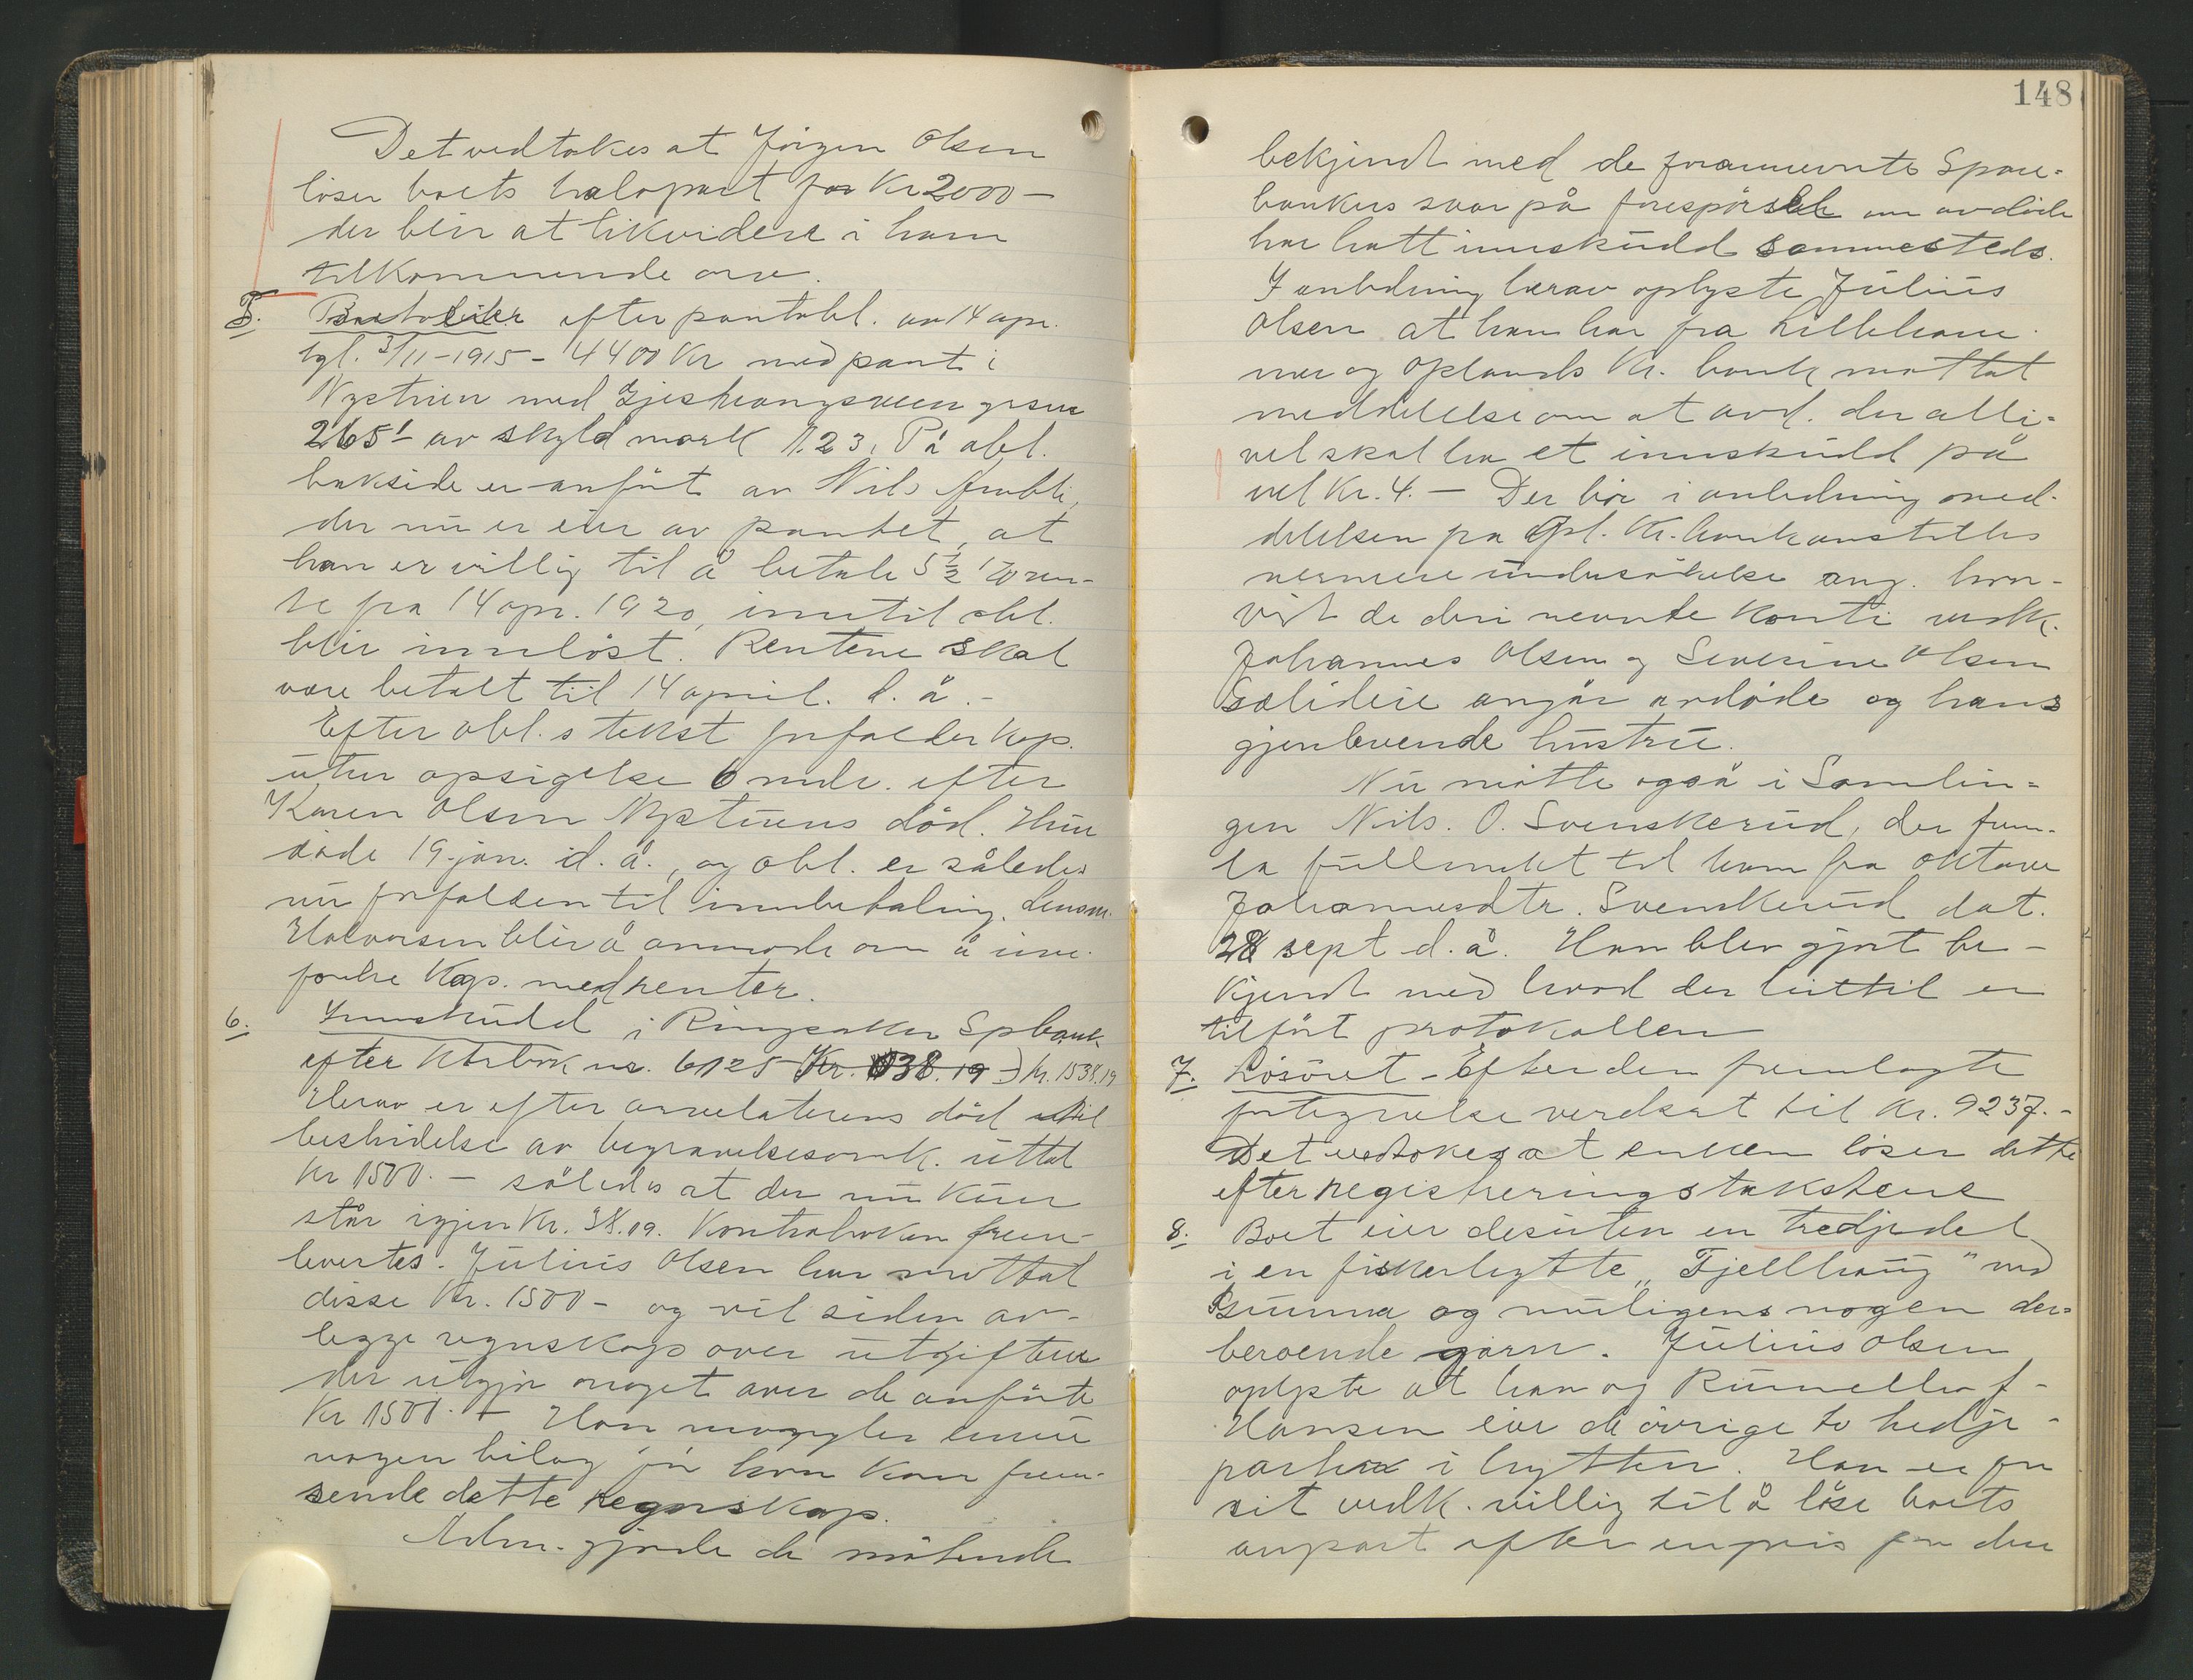 Det vedtokes at Jørgen Olsen
løser boets halvpart for Kr 2000 –
der blir at likvidere i ham
tilkommende arv.
5. efter pantobl. av 14 apr.
tgl. 3/11-1915 - 4400 Kr med pant i
Nystuen med
265/- av skyld mark 1.23. På obl.
bakside er anført av Nils
der nu er eier av pantet, at
han er villig til å betale 5 1/2 % ren-
te fra 14 apr. 1920, inntil obl.
blir innløst. Rentene skal
være betalt til 14 april. d. å. -
Efter obl.s tekst forfalder kap.
uten opsigelse 6 mdr. efter
Karen Olsen Nystuens død. Hun
døde 19 jan. i d. å., og obl. er således
nu forfalden til innbetaling. Lensm.
Halvorsen blir å anmode om å inn-
fordre Kap. med renter.
6. Innskudd i Ringsaker Spbank
efter Ktrbok nr. 6125 Kr. 38.19 Kr. 1538.19
Herav er efter arvelaterens død til
bestridelse av begravelsesomk. uttat
Kr 1500. – således at der nu kun
står igjen Kr. 38.19. Kontraboken frem-
levertes. Julius Olsen har mottat
disse Kr. 1500 – og vil siden av-
legge regnskap over utgiftene
der utgjør noget over de anførte
Kr 1500. – Han mangler ennu
nogen bilag før han kan frem-
sende dette regnskap.
Adm. gjorde de møtende
148
bekjendt med de forannevnte Spare-
bankers svar på forespørsel om avdøde
har hatt innskudd sammesteds.
I anledning herav oplyste Julius
Olsen at han har fra Lilleham-
mer og Oplands Kr. bank mottat
meddelelse om at avd. der alli-
vel skal ha et innskudd på
vel Kr. 4. – Der bør i anledning med-
delelsen fra Opl. Kr. bank anstilles
nærmere undersøkelse ang. hvor-
vidt de deri nevnte konti vedk.
Johannes Olsen og Severine Olsen
Sælidere angår avdøde og hans
gjenlevende hustru.
Nu møtte også i Samlin-
gen Nils. O. Svenskerud, der frem-
la fullmakt til ham fra Oktave
Johannesdtr. Svenskerud dat.
28 sept d. å. Han blev gjort be-
kjendt med hvad der hittil er
tilført protokollen
7. Løsøret – Efter den fremlagte
fortegnelse verdsat til Kr. 9237. -
Det vedtokes at enken løser dette
efter registreringstakstene
8. Boet eier desuten en tredjedel
i en fiskerhytte "Fjellhaug" ved
og muligens nogen der-
beroende garn. Julius Olsen
oplyste at han og
Hansen eier de øvrige to tredje-
parter i hytten. Han er for
sit vedk. villig til å løse boets
anpart efter en pris for den